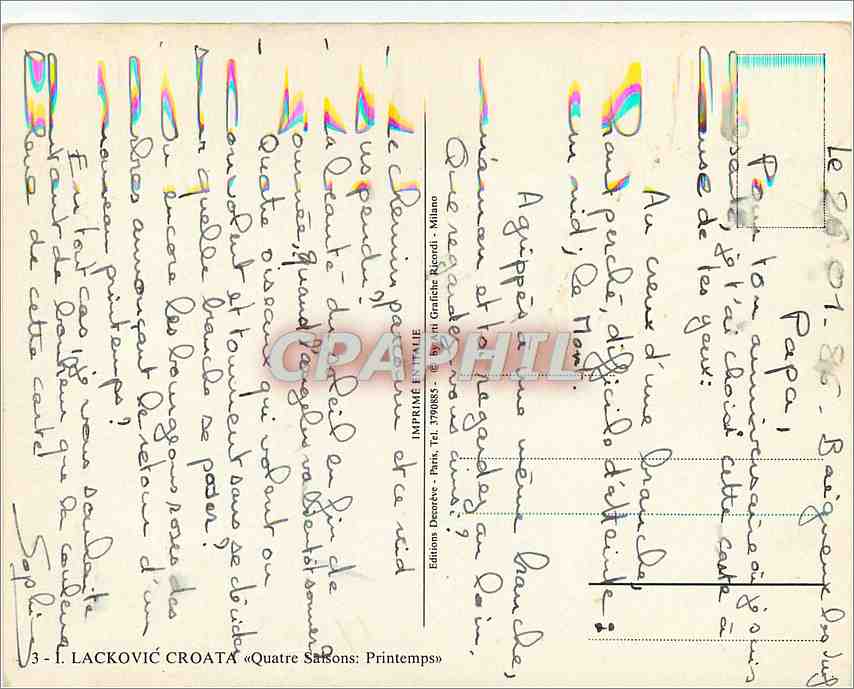 Le 26.01.86. Baigneux les Juifs
Papa,
Pour ton anniversaire où je suis
je t'ai choisi cette carte à
cause de tes yeux:
Au creux d'une branche,
haut perché, difficile d'atteinte:
un nid, le Mon.
Agrippés à une même branche,
maman et toi regardez au loin.
Que regardez-vous ainsi?
Le chemin parcouru et ce nid
suspendu?
la beauté du soleil en fin de
journée, quand l'angelus va bientôt sonner?
Quatre oiseaux qui volent ou
s'envolent et tournent sans se décider
sur quelle branche se poser?
Ou encore les bourgeons roses des
arbres annonçant le retour d'un
nouveau printemps?
En tout cas, je vous souhaite
autant de bonheur que la couleur
bleue de cette carte!
Sophie
IMPRIMÉ EN ITALIE
Editions Decorève - Paris, Tel. 3790885 - © by Arti Grafiche Ricordi - Milano
CPAPHIL
3 - I. LACKOVIĆ CROATA «Quatre Saisons: Printemps»